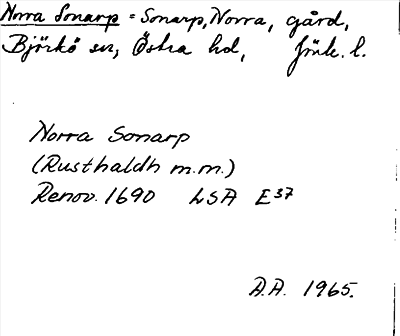 Norra Sonarp = Sonarp, Norra, gård,
Björkö sn, Östra hd, Jönk. l.
Norra Sonarp
(Rusthaldh m.m.)
Renov. 1690 LSA E37
A.A. 1965.